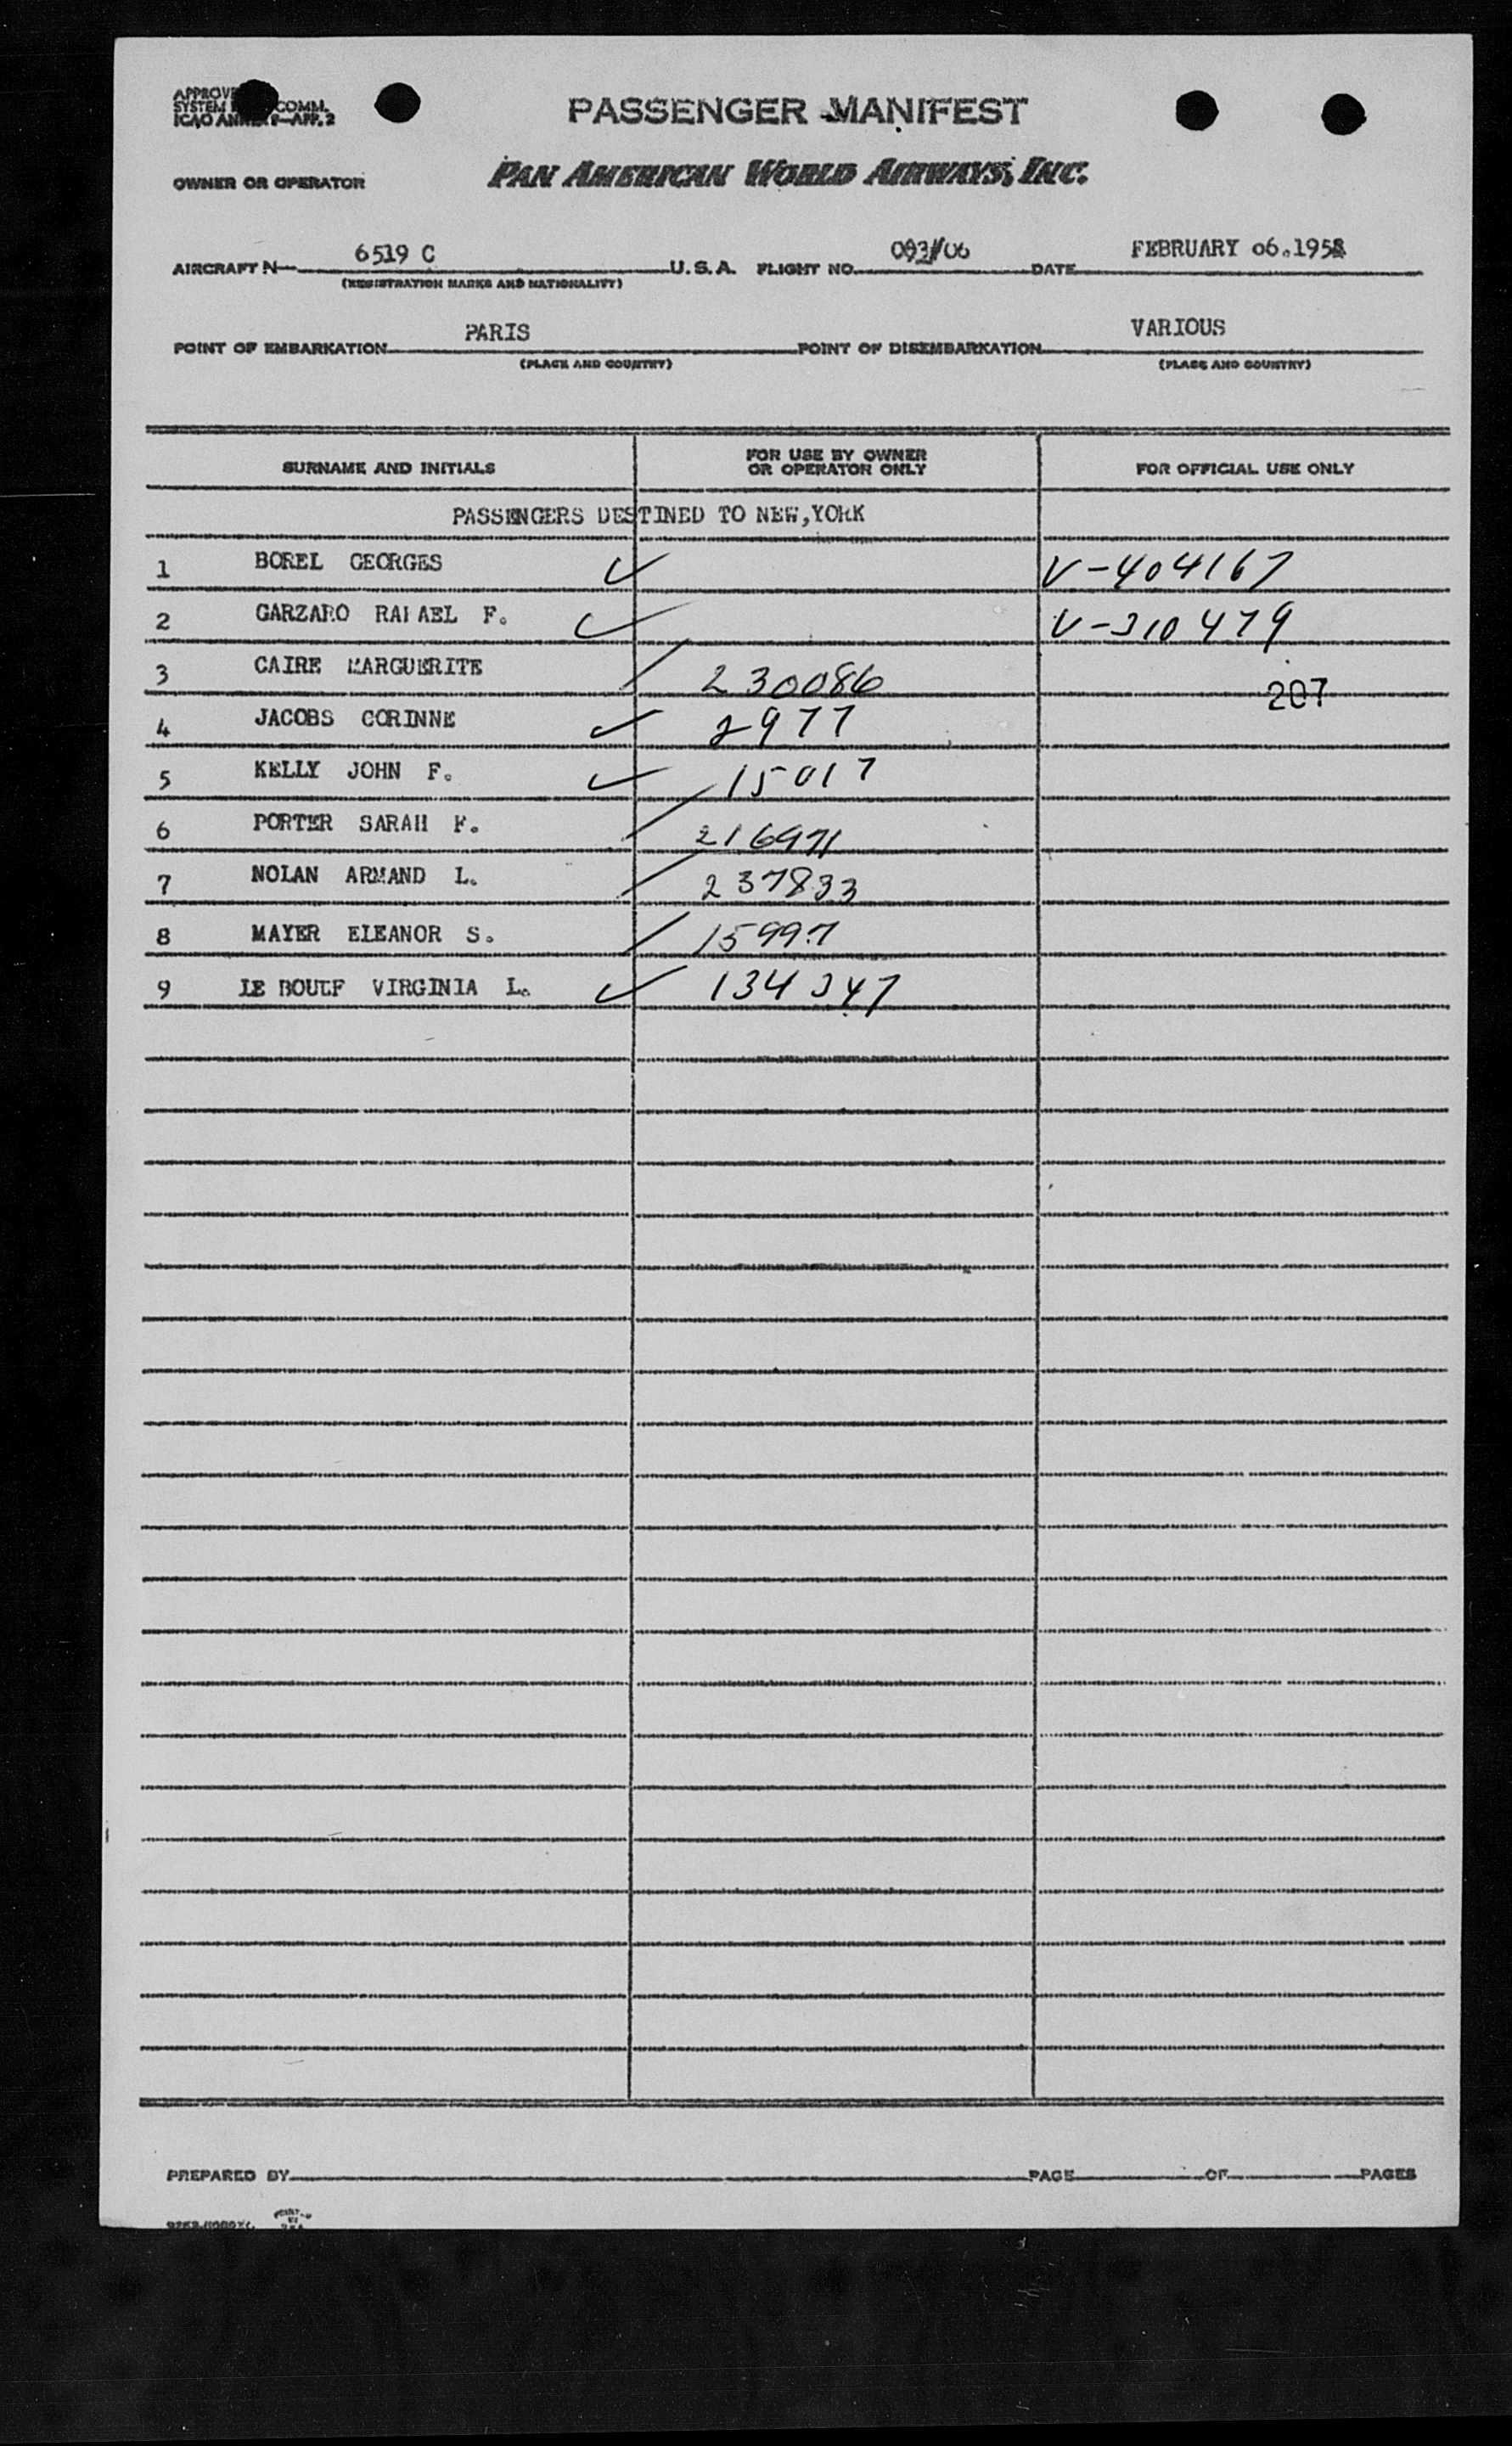 PASSENGER MANIFEST
SYSTEM COMM.
OWNER OR OPERATOR PAN AMERICAN WORLD AIRWAYS, INC.
AIRCRAFT N 6519 C U.S.A. FLIGHT NO. DATE FEBRUARY 06.195
(REGISTRATION MARKS AND NATIONALITY)
POINT OF EMBARKATION PARIS POINT OF DISEMBARKATION VARIOUS
(PLACE AND COUNTRY) (PLACE AND COUNTRY)
SURNAME AND INITIALS FOR USE BY OWNER OR OPERATOR ONLY FOR OFFICIAL USE ONLY
PASSENGERS DESTINED TO NEW,YORK
1 BOREL GEORGES V-404167
2 GARZARO RAFAEL F. V-310479
3 CAIRE MARGUERITE 230086 207
4 JACOBS CORINNE 2977
5 KELLY JOHN F. 15017
6 PORTER SARAH F. 216971
7 NOLAN ARMAND L. 237833
8 MAYER ELEANOR S. 15997
9 LE BOUEF VIRGINIA L. 134347
PREPARED BY PAGE OF PAGES